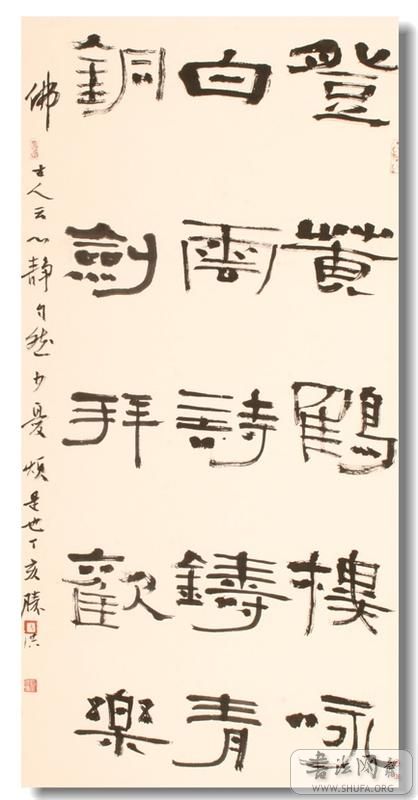 登黄鶴樓咏
白雲詩鑄青
銅劍拜歡樂
佛士人云心静自然少憂煩是也丁亥滕洪
書法网
WWW.SHUFA.ORG